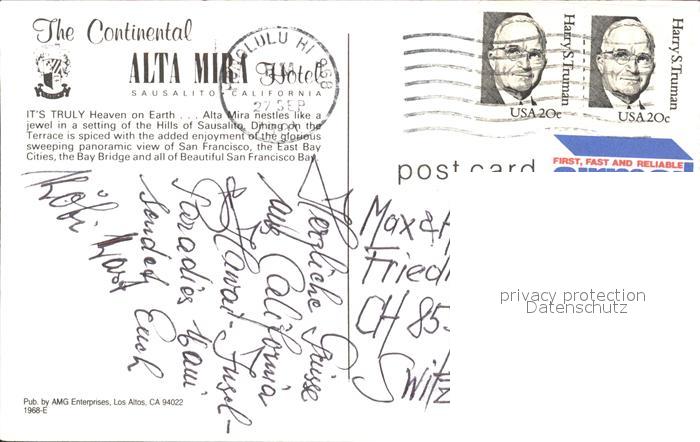 The Continental
ALTA MIRA Hotel
SAUSALITO · CALIFORNIA
IT'S TRULY Heaven on Earth . . . Alta Mira nestles like a
jewel in a setting of the Hills of Sausalito. Dining on the
Terrace is spiced with the added enjoyment of the glorious
sweeping panoramic view of San Francisco, the East Bay
Cities, the Bay Bridge and all of Beautiful San Francisco Bay.
HONOLULU HI 968
27 SEP
Harry S. Truman
USA 20c
Harry S. Truman
USA 20c
post card
FIRST, FAST AND RELIABLE
Herzliche Grüsse
aus California
& Hawai-Insel-
Paradies Maui
sendet Euch
Köbi
Max &
Fried
CH 85
Switz
privacy protection
Datenschutz
Pub. by AMG Enterprises, Los Altos, CA 94022
1968-E